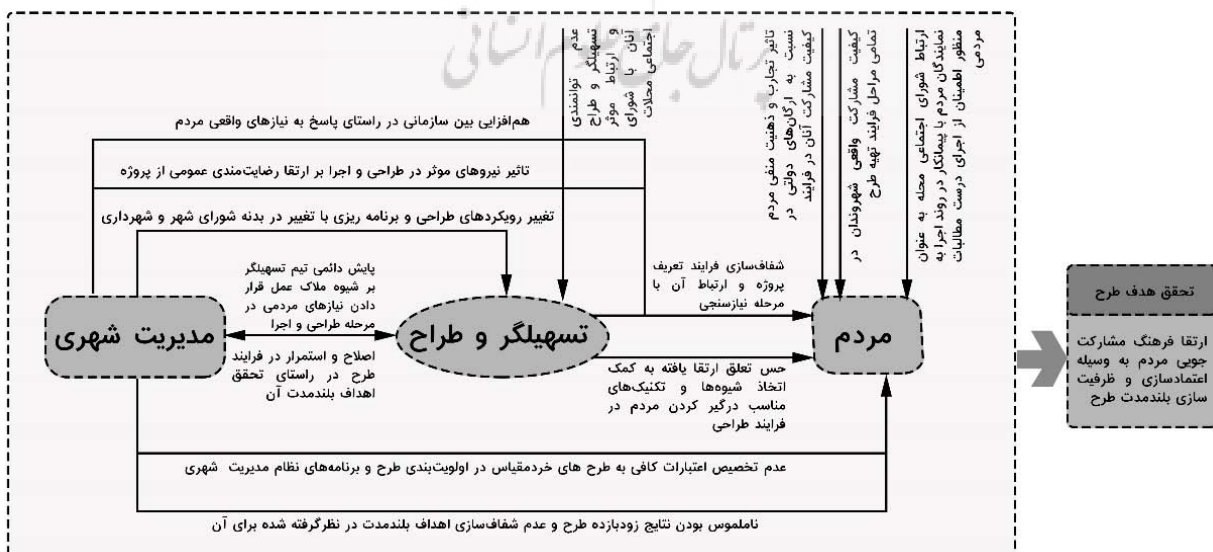 پرتال جامع علوم انسانی
عدم توانمندی
تسهیلگر و طراح
و ارتباط موثر
آنان با شورای
اجتماعی محلات
تاثیر تجارب و ذهنیت منفی مردم
نسبت به ارگان‌های دولتی در
کیفیت مشارکت آنان در فرایند
کیفیت مشارکت واقعی شهروندان در
تمامی مراحل فرایند تهیه طرح
ارتباط شورای اجتماعی محله به عنوان
نمایندگان مردم با پیمانکار در روند اجرا به
منظور اطمینان از اجرای درست مطالبات
مردمی
هم‌افزایی بین سازمانی در راستای پاسخ به نیازهای واقعی مردم
تاثیر نیروهای موثر در طراحی و اجرا بر ارتقا رضایت‌مندی عمومی از پروژه
تغییر رویکردهای طراحی و برنامه ریزی با تغییر در بدنه شورای شهر و شهرداری
پایش دائمی تیم تسهیلگر
بر شیوه ملاک عمل قرار
دادن نیازهای مردمی در
مرحله طراحی و اجرا
شفاف‌سازی فرایند تعریف
پروژه و ارتباط آن با
مرحله نیازسنجی
مدیریت شهری
تسهیلگر و طراح
مردم
اصلاح و استمرار در فرایند
طرح در راستای تحقق
اهداف بلندمدت آن
حس تعلق ارتقا یافته به کمک
اتخاذ شیوه‌ها و تکنیک‌های
مناسب درگیر کردن مردم در
فرایند طراحی
عدم تخصیص اعتبارات کافی به طرح های خردمقیاس در اولویت‌بندی طرح و برنامه‌های نظام مدیریت شهری
ناملموس بودن نتایج زودبازده طرح و عدم شفاف‌سازی اهداف بلندمدت در نظرگرفته شده برای آن
تحقق هدف طرح
ارتقا فرهنگ مشارکت
جویی مردم به وسیله
اعتمادسازی و ظرفیت
سازی بلندمدت طرح